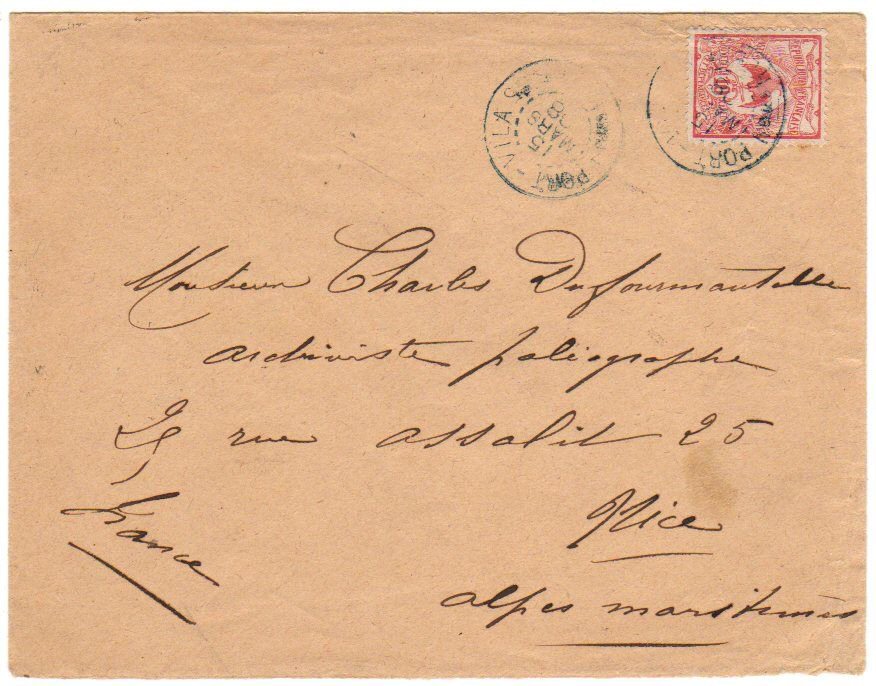 PORT-VILA
15
MARS
REPUBLIQUE FRANÇAISE
10
PORT-V
15
MARS
Monsieur Charles Dufourmantelle
archiviste paléographe
25 rue assalit 25
Nice
alpes maritimes
France